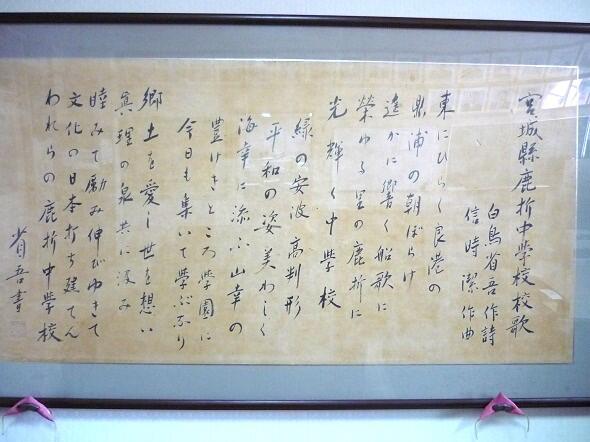 宮城縣鹿折中學校校歌
白鳥省吾作詩
信時潔作曲
東にひらく良港の
鼎浦の朝ぼらけ
遙かに響く船歌に
榮ゆる里の鹿折に
光輝く中學校
緑の安波高判形
平和の姿美わしく
海幸に添ふ山幸の
豊けきところ學園に
今日も集いて學ぶなり
郷土を愛し世を想い
眞理の泉共に汲み
睦みて勵み伸びゆきて
文化の日本打ち建てん
われらの鹿折中學校
省吾書